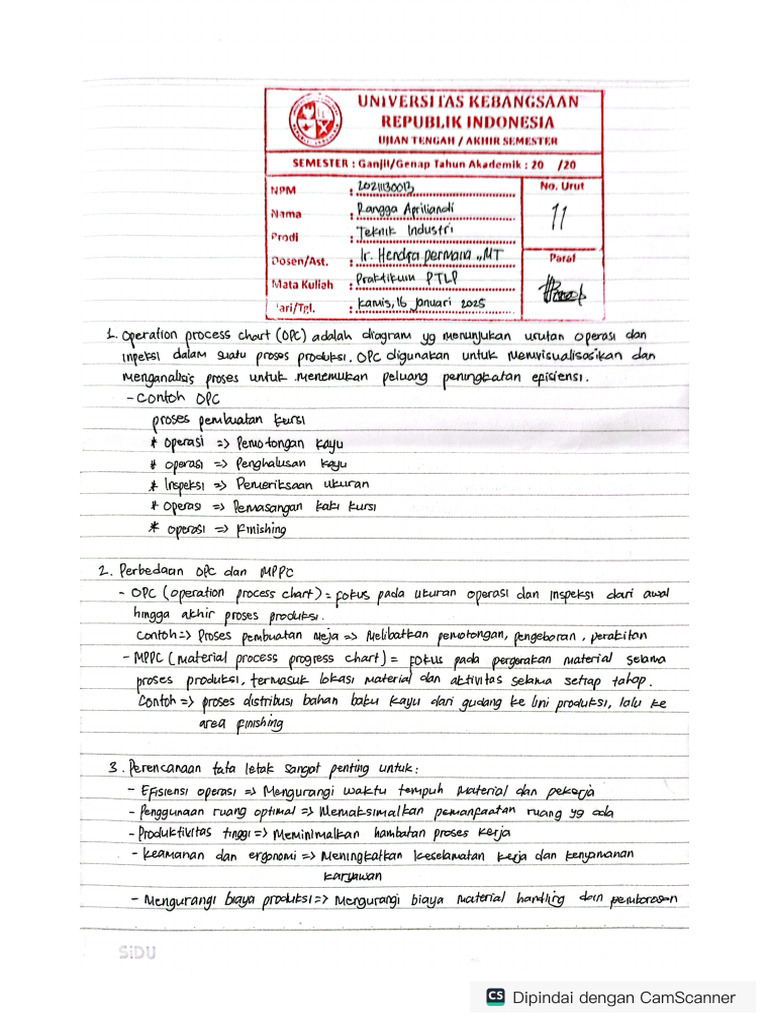 UNIVERSITAS KEBANGSAAN
REPUBLIK INDONESIA
UJIAN TENGAH / AKHIR SEMESTER
SEMESTER : Ganjil/Genap Tahun Akademik : 20 /20
NPM : 20211130013
No. Urut
11
Nama : Rangga Apriliandi
Prodi : Teknik Industri
Dosen/Ast. : Ir. Hendra permana ,,MT
Paraf
Mata Kuliah : Praktikum PTLP
Hari/Tgl. : Kamis, 16 Januari 2025
1. Operation process chart (OPC) adalah diagram yg menunjukan urutan operasi dan
inpeksi dalam suatu proses produksi. OPC digunakan untuk memvisualisasikan dan
menganalisis proses untuk menemukan peluang peningkatan efisiensi.
- Contoh OPC
proses pembuatan kursi
* operasi => Pemotongan kayu
* operasi => Penghalusan kayu
* Inspeksi => Pemeriksaan ukuran
* operasi => Pemasangan kaki kursi
* operasi => Finishing
2. Perbedaan OPC dan MPPC
- OPC (operation process chart) = fokus pada ukuran operasi dan inspeksi dari awal
hingga akhir proses produksi.
Contoh => Proses pembuatan meja => Melibatkan pemotongan, pengeboran, perakitan
- MPPC (material process progress chart) = fokus pada pergerakan material selama
proses produksi, termasuk lokasi material dan aktivitas selama setiap tahap.
Contoh => proses distribusi bahan baku kayu dari gudang ke lini produksi, lalu ke
area finishing
3. Perencanaan tata letak sangat penting untuk:
- Efisiensi operasi => Mengurangi waktu tempuh material dan pekerja
- Penggunaan ruang optimal => Memaksimalkan pemanfaatan ruang yg ada
- Produktivitas tinggi => Meminimalkan hambatan proses kerja
- Keamanan dan ergonomi => Meningkatkan keselamatan kerja dan kenyamanan
karyawan
- Mengurangi biaya produksi => Mengurangi biaya material handling dan pemborosan
SiDU
CS Dipindai dengan CamScanner